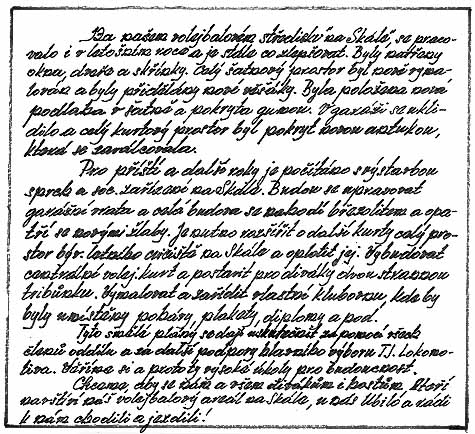 Na našem volejbalovém středisku "na Skále" se praco-
valo i v letošním roce a je stále co zlepšovat. Byly natřeny
okna, dveře a skříňky. Celý šatnový prostor byl nově vyma-
lován a byly přidělány nové věšáky. Byla položena nová
podlaha v šatně a pokryta gumou. V garáži se ukli-
dilo a celý kurtový prostor byl pokryt novou antukou,
která se zaválcovala.
Pro příští a další roky je počítáno s výstavbou
sprch a soc. zařízení na Skále. Budou se upravovat
garážní vrata a celá budova se nahodí břízolitem a opa-
tří se novými žlaby. Je nutno rozšířit o další kurty celý pro-
stor býv. letního cvičiště na Skále a oplotit jej. Vybudovat
centrální volej. kurt a postavit pro diváky dvou strannou
tribunku. Vymalovat a zařídit vlastní klubovnu, kde by
byly umístěny poháry, plakety, diplomy a pod.
Tyto smělé plány se dají uskutečnit za pomoci všech
členů oddílu a za další podpory hlavního výboru T.J. Lokomo-
tiva. Věříme si a proto ty vysoké úkoly pro budoucnost.
Chceme, aby se nám a všem divákům i hostům, kteří
navštíví náš volejbalový areál na Skále, u nás líbilo a rádi
k nám chodili a jezdili!